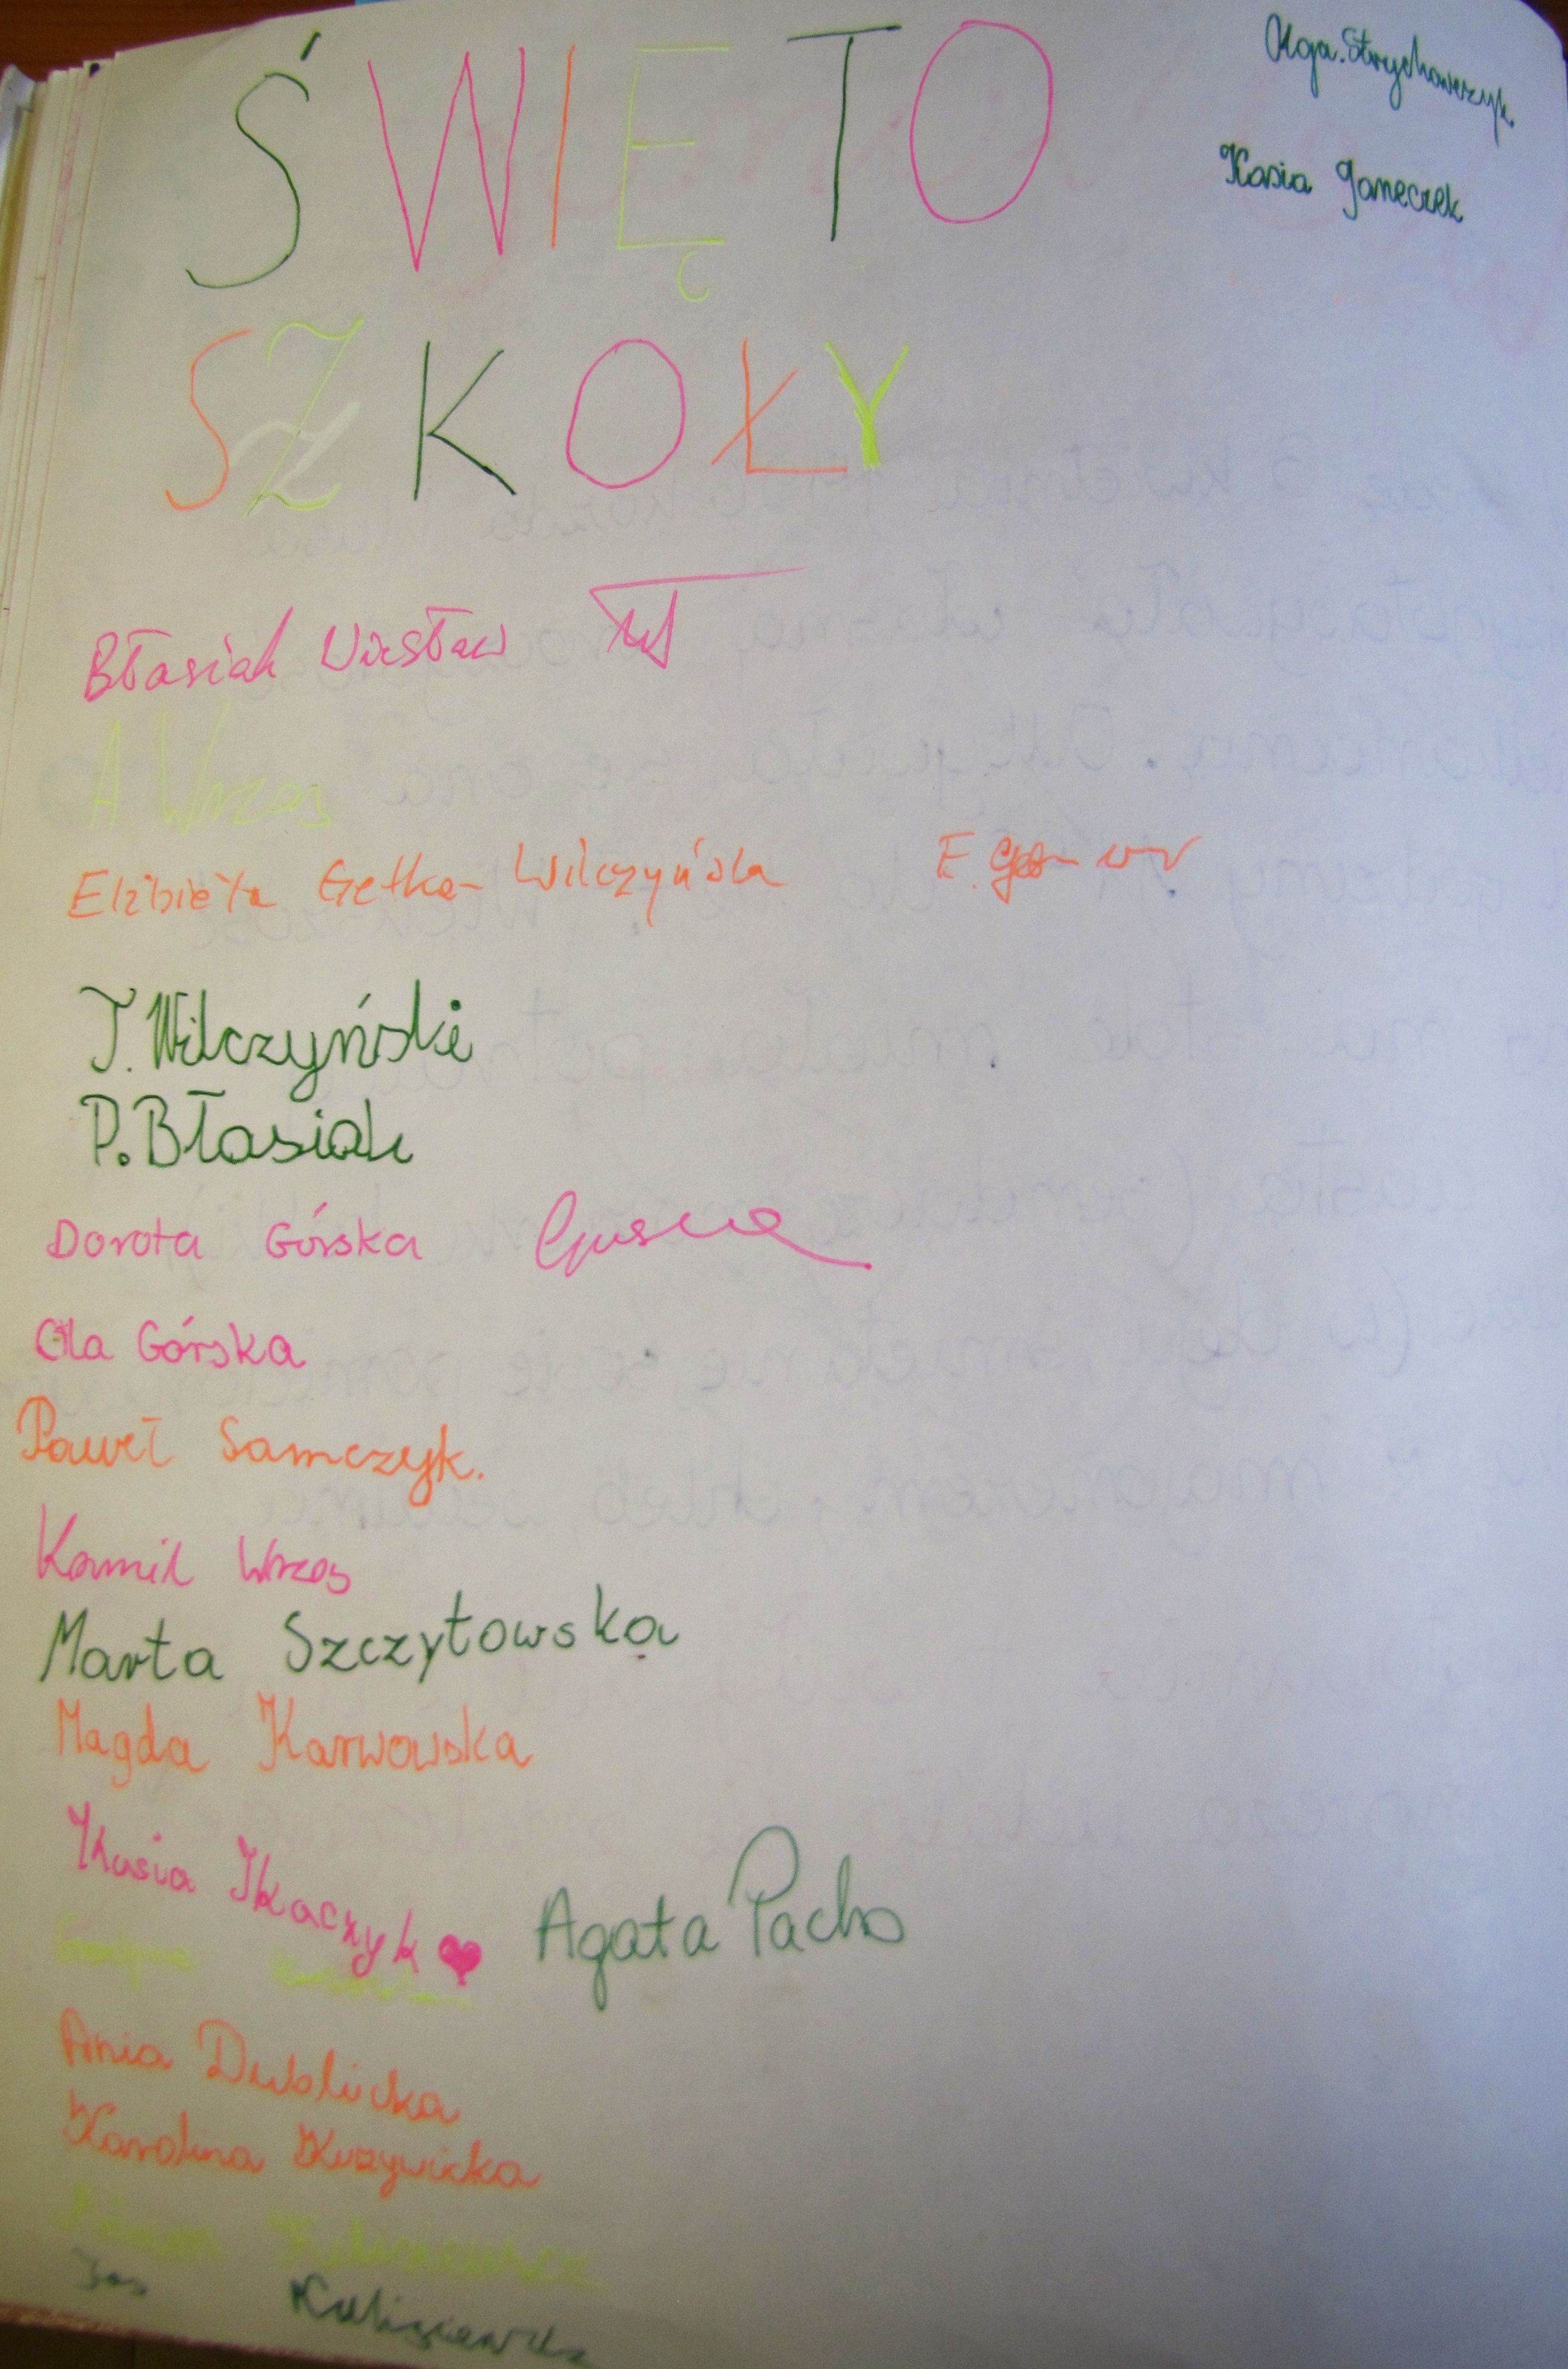 ŚWIĘTO
Olga. Strychowczyk.
Kasia Janeczek
SZKOŁY
Błasiak Wiesław
A Wrzos
Elżbieta Getka-Wilczyńska
J. Wilczyński
P. Błasiak
Dorota Górska
Ola Górska
Paweł Samczyk.
Kamil Wrzos
Marta Szczytowska
Magda Karwowska
Kasia Tkaczyk
Agata Pacho
Ania Dublicka
Karolina